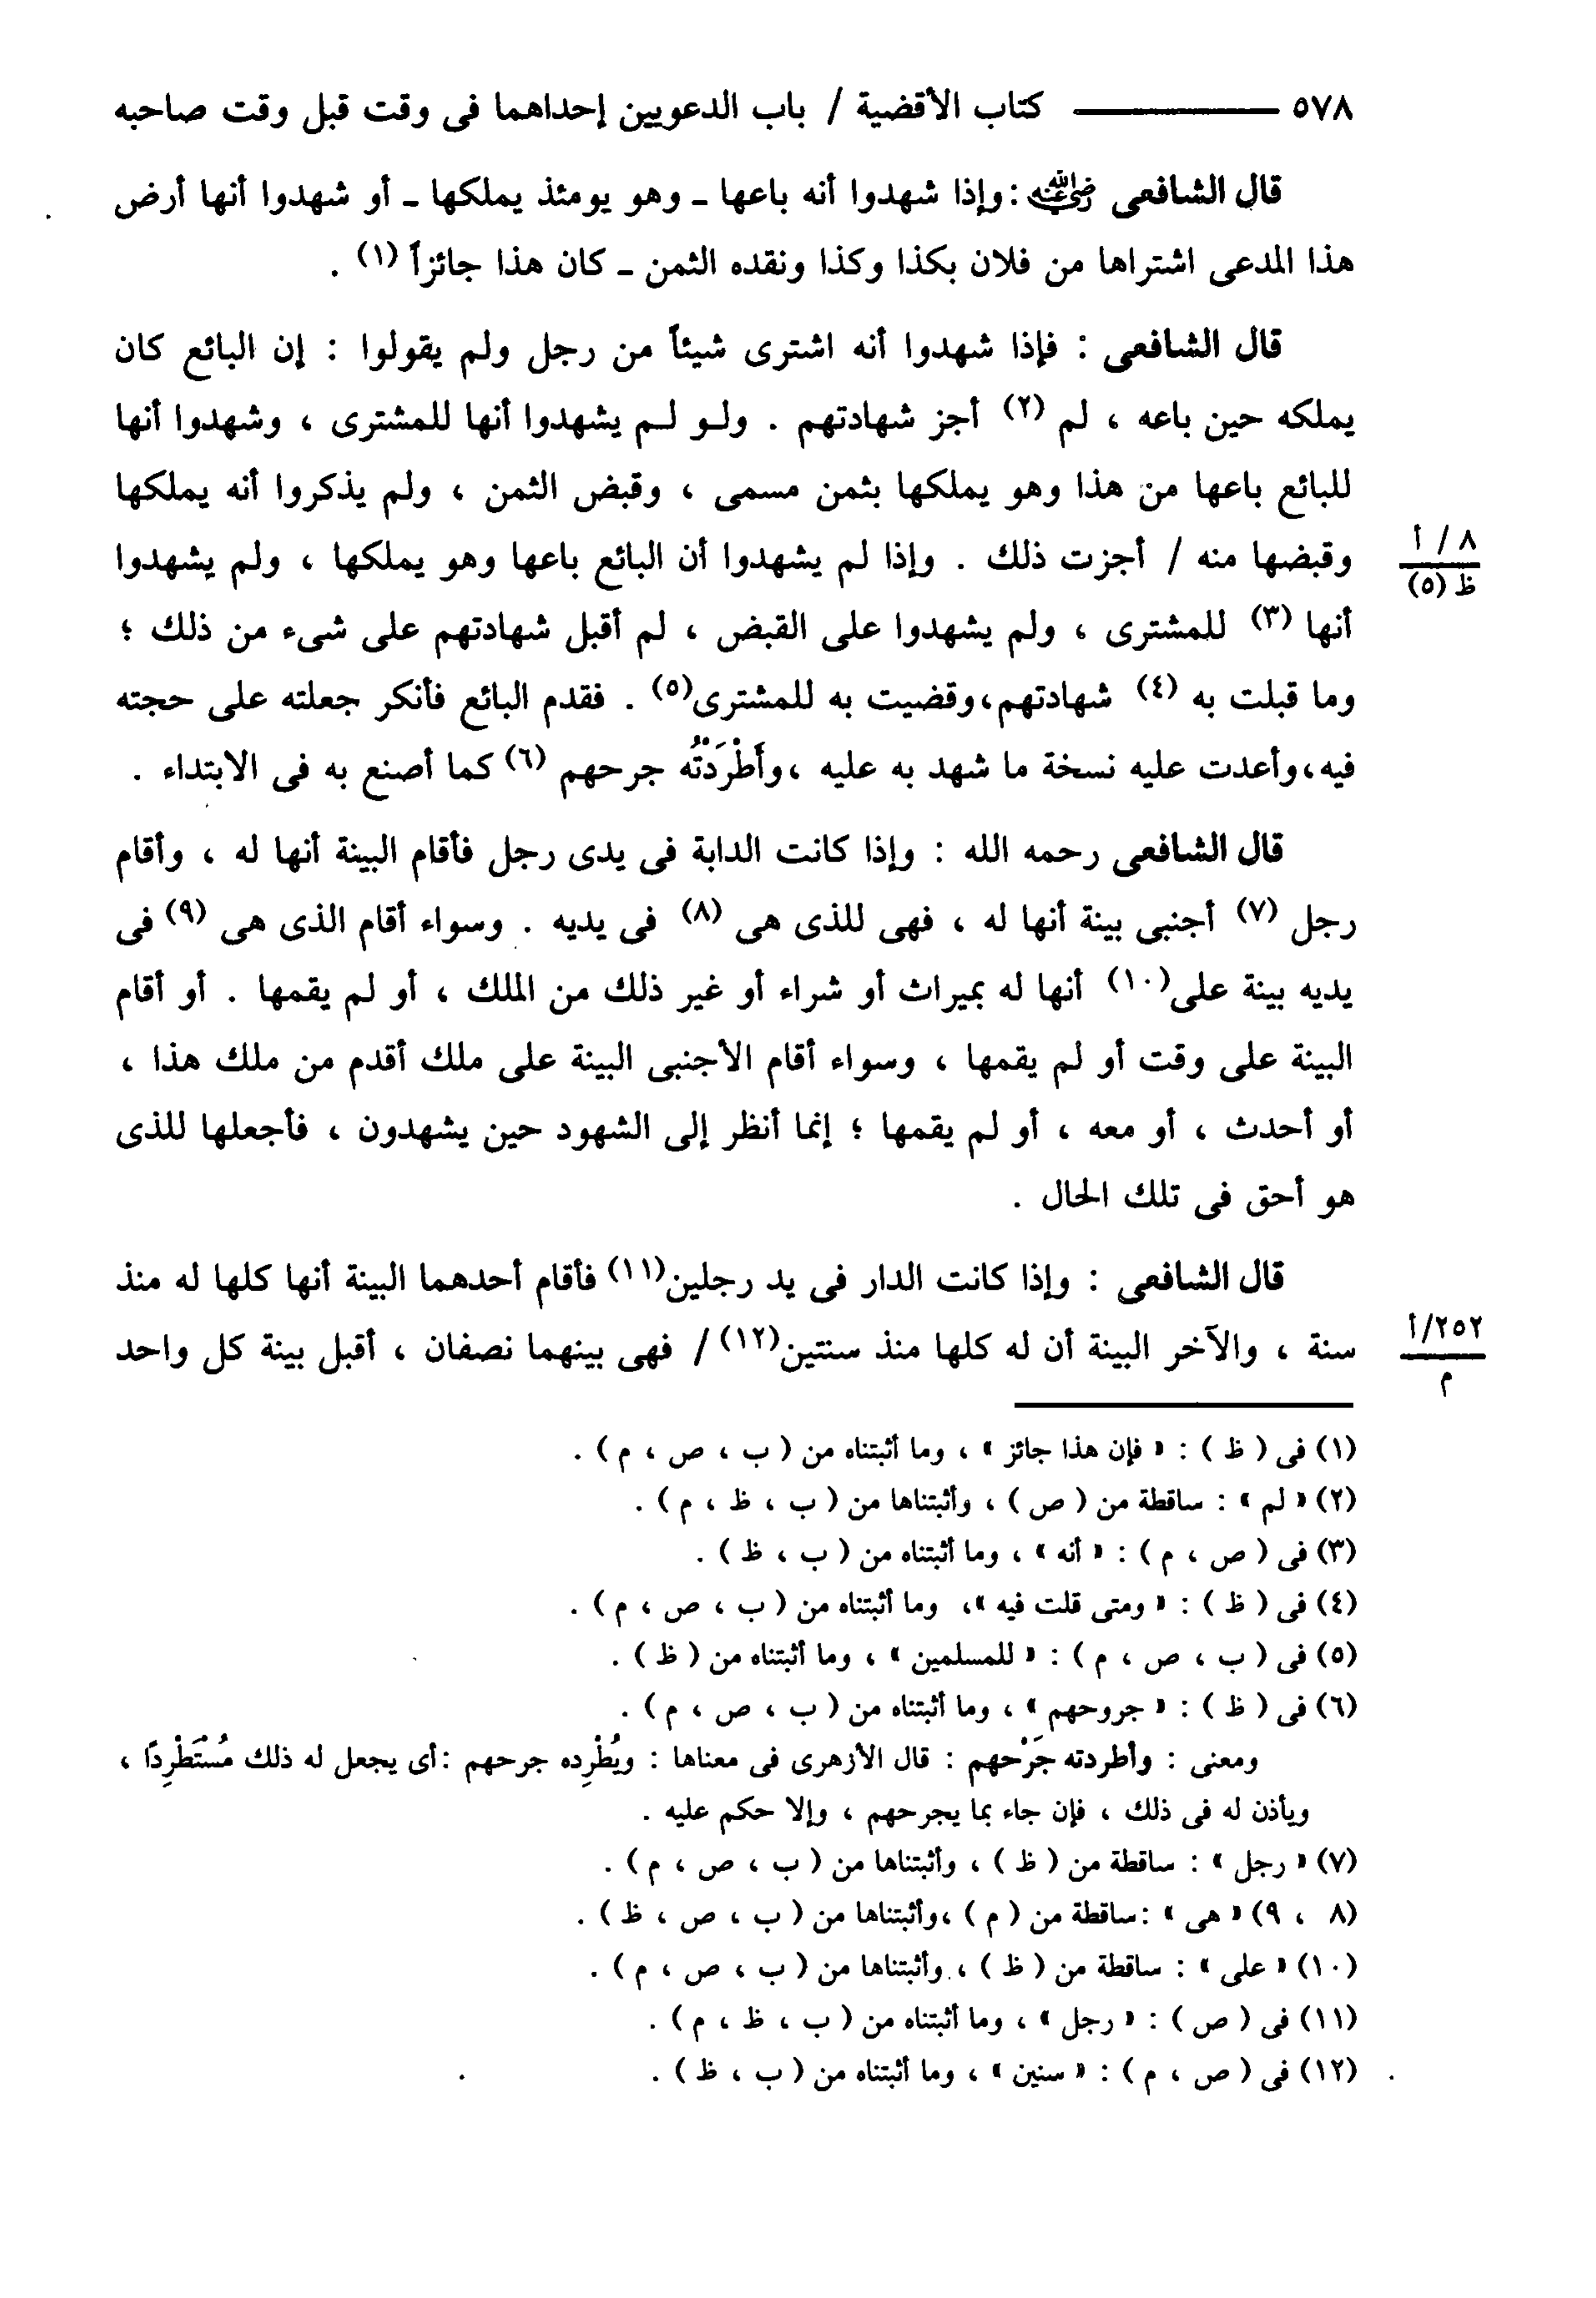 ٥٧٨ ــــــــــــ كتاب الأقضية / باب الدعويين إحداهما فى وقت قبل وقت صاحبه
قال الشافعى رضي الله عنه : وإذا شهدوا أنه باعها ـ وهو يومئذ يملكها ـ أو شهدوا أنها أرض
هذا المدعى اشتراها من فلان بكذا وكذا ونقده الثمن ـ كان هذا جائزاً (١) .
قال الشافعى : فإذا شهدوا أنه اشترى شيئاً من رجل ولم يقولوا : إن البائع كان
يملكه حين باعه ، لم (٢) أجز شهادتهم . ولـو لـم يشهدوا أنها للمشترى ، وشهدوا أنها
للبائع باعها من هذا وهو يملكها بثمن مسمى ، وقبض الثمن ، ولم يذكروا أنه يملكها
وقبضها منه / أجزت ذلك . وإذا لم يشهدوا أن البائع باعها وهو يملكها ، ولم يشهدوا
٨ / أ
ظ (٥)
أنها (٣) للمشترى ، ولم يشهدوا على القبض ، لم أقبل شهادتهم على شىء من ذلك ؛
وما قبلت به (٤) شهادتهم،وقضيت به للمشترى(٥) . فقدم البائع فأنكر جعلته على حجته
فيه،وأعدت عليه نسخة ما شهد به عليه ،وأَطْرَدْتُه جرحهم (٦) كما أصنع به فى الابتداء .
قال الشافعى رحمه الله : وإذا كانت الدابة فى يدى رجل فأقام البينة أنها له ، وأقام
رجل (٧) أجنبى بينة أنها له ، فهى للذى هى (٨) فى يديه . وسواء أقام الذى هى (٩) فى
يديه بينة على(١٠) أنها له بميراث أو شراء أو غير ذلك من الملك ، أو لم يقمها . أو أقام
البينة على وقت أو لم يقمها ، وسواء أقام الأجنبى البينة على ملك أقدم من ملك هذا ،
أو أحدث ، أو معه ، أو لم يقمها ؛ إنما أنظر إلى الشهود حين يشهدون ، فأجعلها للذى
هو أحق فى تلك الحال .
قال الشافعى : وإذا كانت الدار فى يد رجلين(١١) فأقام أحدهما البينة أنها كلها له منذ
سنة ، والآخر البينة أن له كلها منذ سنتين(١٢) / فهى بينهما نصفان ، أقبل بينة كل واحد
٢٥٢/أ
م
(١) فى ( ظ ) : « فإن هذا جائز » ، وما أثبتناه من ( ب ، ص ، م ) .
(٢) « لم » : ساقطة من ( ص ) ، وأثبتناها من ( ب ، ظ ، م ) .
(٣) فى ( ص ، م ) : « أنه » ، وما أثبتناه من ( ب ، ظ ) .
(٤) فى ( ظ ) : « ومتى قلت فيه »، وما أثبتناه من ( ب ، ص ، م ) .
(٥) فى ( ب ، ص ، م ) : « للمسلمين » ، وما أثبتناه من ( ظ ) .
(٦) فى ( ظ ) : « جروحهم » ، وما أثبتناه من ( ب ، ص ، م ) .
ومعنى : وأطردته جَرْحهم : قال الأزهرى فى معناها : ويُطْرِده جرحهم :أى يجعل له ذلك مُسْتَطْرِدًا ،
ويأذن له فى ذلك ، فإن جاء بما يجرحهم ، وإلا حكم عليه .
(٧) « رجل » : ساقطة من ( ظ ) ، وأثبتناها من ( ب ، ص ، م ) .
(٨ ، ٩) « هى » :ساقطة من ( م ) ،وأثبتناها من ( ب ، ص ، ظ ) .
(١٠) « على » : ساقطة من ( ظ ) ، وأثبتناها من ( ب ، ص ، م ) .
(١١) فى ( ص ) : « رجل » ، وما أثبتناه من ( ب ، ظ ، م ) .
(١٢) فى ( ص ، م ) : « سنين » ، وما أثبتناه من ( ب ، ظ ) .